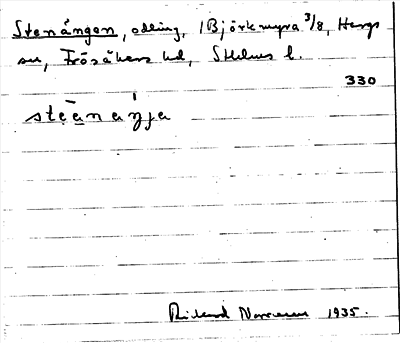 Stenängen, odling, 1 Björkmyra 3/8, Hargs
sn, Frösåkers hd, Sthlms l.
330
steànaŋja
Rickard 1935.